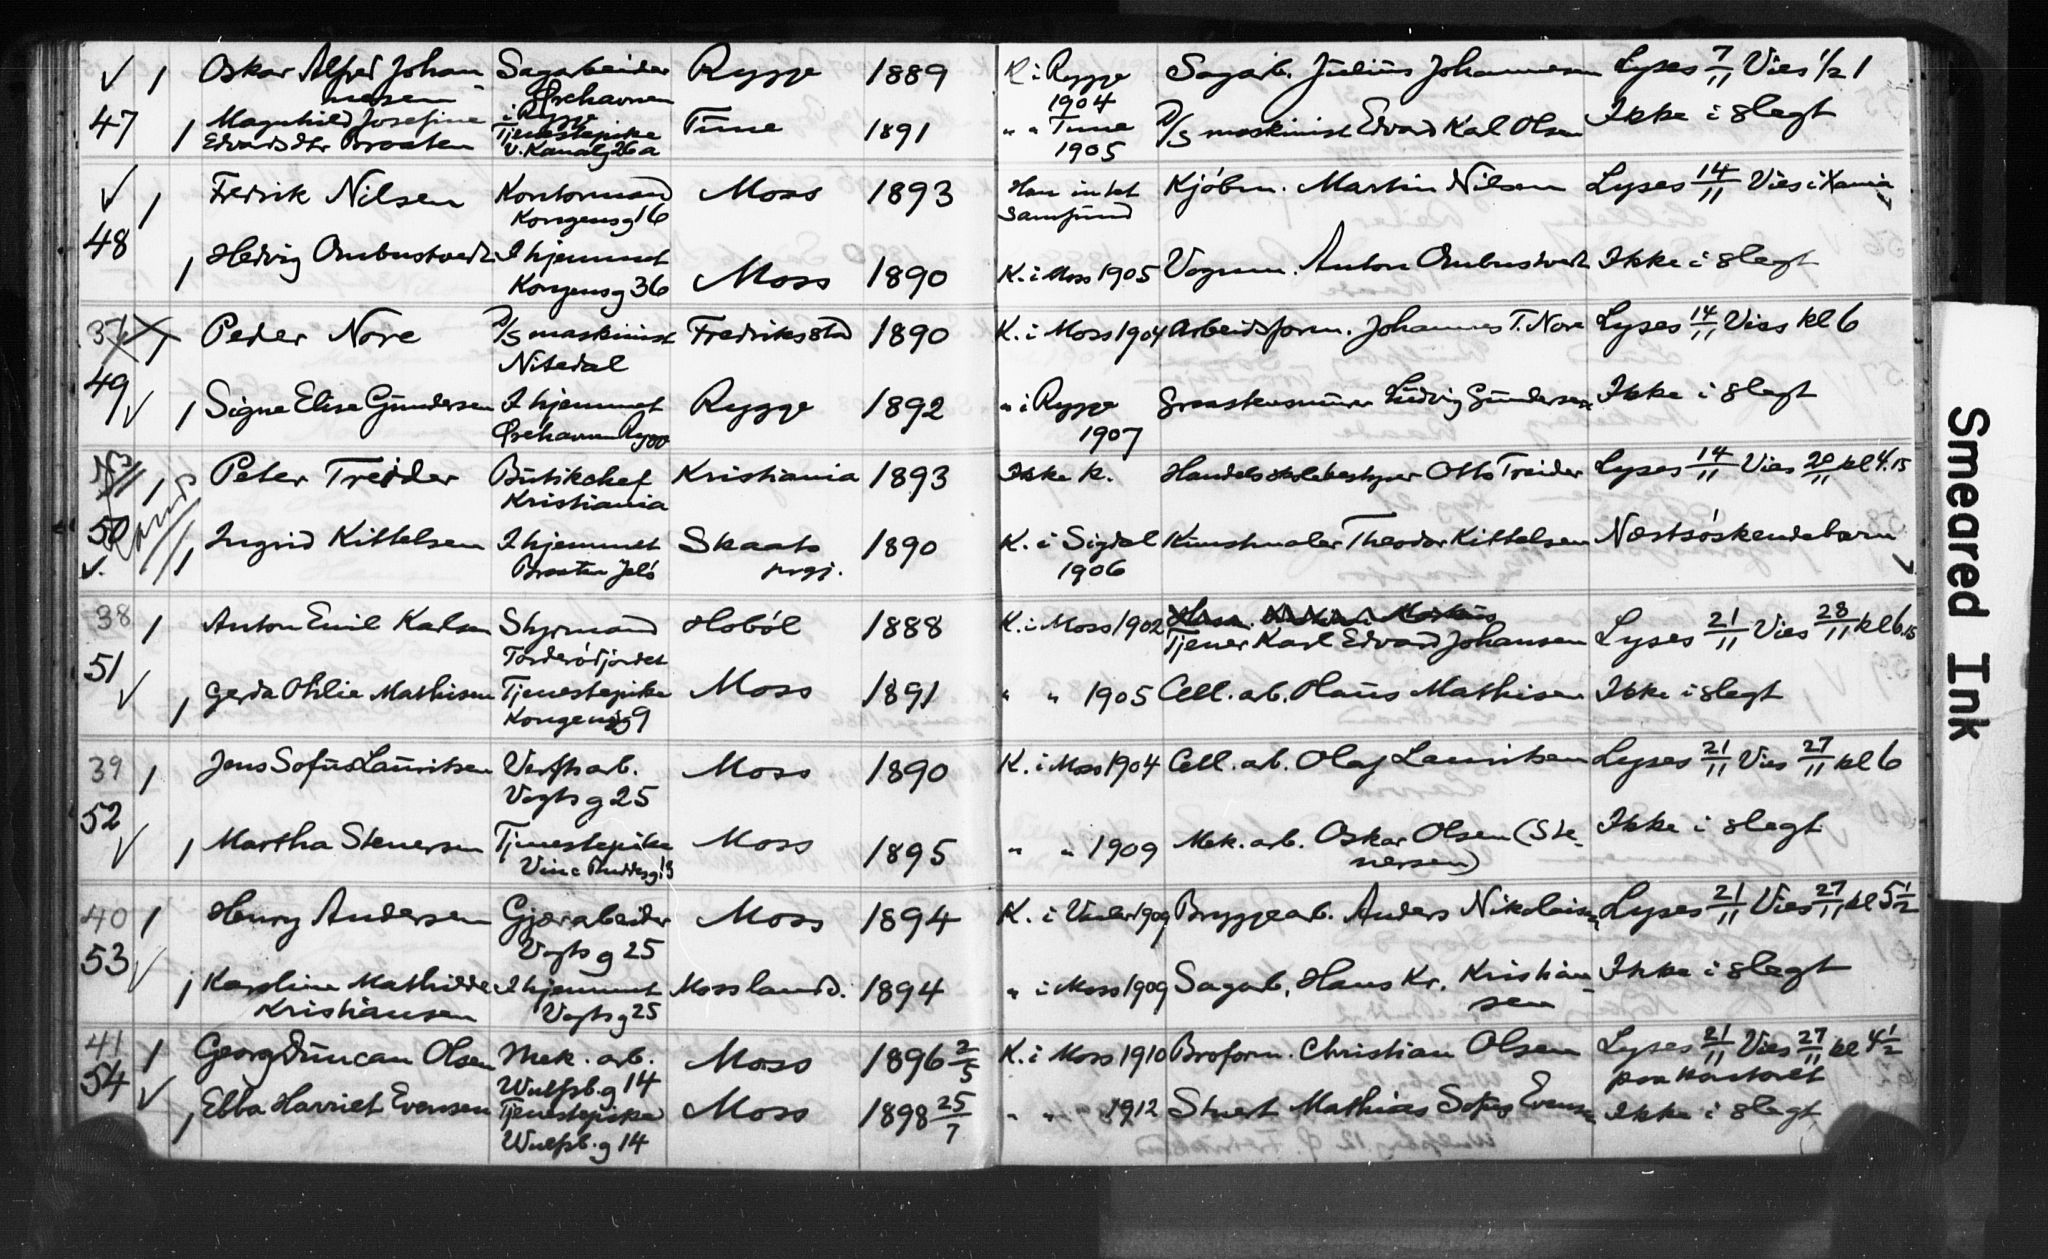 ✓ 1 Oskar Alfred Johan- Sagarbeider Rygge 1889 K. i Rygge Sagarb. Julius Johannesen Lyses 7/11 Vies 1/2 1
nesen Ørehavnen 1904
47 1 Magnhild Josefine i Rygge Tune 1891 " " Tune D/S maskinist Edvard Kal Olsen Ikke i slegt
Edvardsdtr Braaten Tjenestepike 1905
v. Kanalg 26a
✓ 1 Fredrik Nilsen Kontormand Moss 1893 Har intet Kjøbm. Martin Nilsen Lyses 14/11 Vies i Xania
Kongensg 16 samfund
48 1 Hedvig Ombustvedt I hjemmet Moss 1890 K. i Moss 1905 Vognm. Anton Ombustvedt Ikke i slegt
Kongensg 36
37 1 Peder Nore D/S maskinist Fredriksstad 1890 K. i Moss 1904 Arbeidsform. Johannes T. Nore Lyses 14/11 Vies kl 6
Nitedal
49 ✓ 1 Signe Elise Gundersen I hjemmet Rygge 1892 " i Rygge Graaskusmurer Ludvig Gundersen Ikke i slegt
Ørehavnen Rygge 1907
1 Peter Treider Butikchef Kristiania 1893 Ikke k. Handelsskolebestyrer Otto Treider Lyses 14/11 Vies 20/11 kl 4.15
Kristiania
50 ✓ 1 Ingrid Kittelsen I hjemmet Skaatø 1890 K. i Sigdal Kunstmaler Theodor Kittelsen Næstsøskendebarn
Braaten Jelø prgj. 1906
38 1 Anton Emil Karlsen Styrmand Hobøl 1888 K. i Moss 1902 Tjener Karl Edvard Johansen Lyses 21/11 Vies 28/11 kl 6.15
Torderødjordet
51 ✓ 1 Gerda Othlie Mathisen Tjenestepike Moss 1891 " " 1905 Cell. arb. Hans Mathisen Ikke i slegt
Kongensg 9
39 1 Jens Sofus Lauritsen Verftsarb. Moss 1890 K. i Moss 1904 Cell. arb. Olaf Lauritsen Lyses 21/11 Vies 27/11 kl 6
Vogts g 25
52 ✓ 1 Martha Stenersen Tjenestepike Moss 1895 " " 1909 Mek. arb. Oskar Olsen (Ste- Ikke i slegt
nersen)
40 1 Henry Andersen Gjærarbeider Moss 1894 K. i Vinler 1909 Bryggearb. Anders Nikolaisen Lyses 21/11 Vies 27/11 kl 5 1/2
Vogts g 25
53 ✓ 1 Karoline Mathilde I hjemmet Mosslands. 1894 " i Moss 1909 Sagarb. Hans Kr. Kristian- Ikke i slegt
Kristiansen Vogtsg 25 sen
41 1 Georg Duncan Olsen Mek. arb. Moss 1896 2/5 K. i Moss 1910 Broform. Christian Olsen Lyses 21/11 Vies 27/11 kl 4 1/2
Wulfsb.g 14 paa kontoret
54 ✓ 1 Ebba Harriet Evensen Tjenestepike Moss 1898 25/7 " " 1912 Stuert Mathias Sofus Evensen Ikke i slegt
Wulfsb.g 14
Smeared Ink